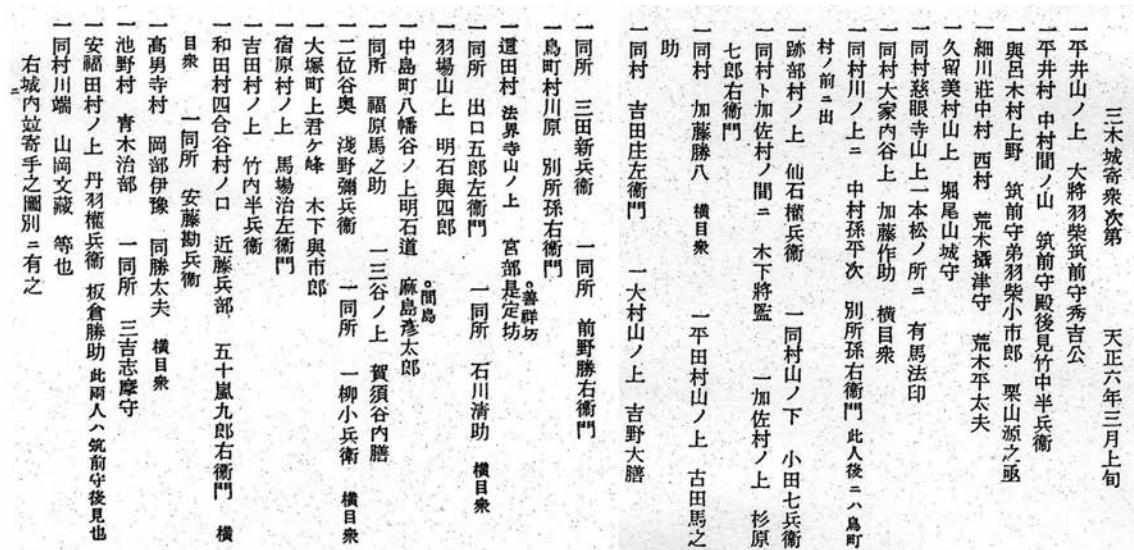 三木城寄衆次第　　　　天正六年三月上旬
一平井山ノ上　大將羽柴筑前守秀吉公
一平井村　中村間ノ山　筑前守殿後見竹中半兵衞
一與呂木村上野　筑前守弟羽柴小市郎　栗山源之亟
一細川莊中村　西村　荒木攝津守　荒木平太夫
一久留美村山上　堀尾山城守
一同村慈眼寺山上一本松ノ所ニ　有馬法印
一同村大家內谷上　加藤作助　橫目衆
一同村川ノ上ニ　中村孫平次　別所孫右衞門　此人後ニハ鳥町
村ノ前ニ出
一跡部村ノ上　仙石權兵衞　一同村山ノ下　小田七兵衞
一同村ト加佐村ノ間ニ　木下將監　一加佐村ノ上　杉原
七郎右衞門
一同村　加藤勝八　橫目衆　一平田村山ノ上　古田馬之
助
一同村　吉田庄左衞門　一大村山ノ上　吉野大膳
一同所　三田新兵衞　一同所　前野勝右衞門
一鳥町村川原　別所孫右衞門
一這田村　法界寺山ノ上　宮部是定坊
○善祥坊
一同所　出口五郎左衞門　一同所　石川淸助　橫目衆
一羽場山上　明石與四郎
一中島町八幡谷ノ上明石道　麻島彥太郎
○間島
一同所　福原馬之助　一三谷ノ上　賀須谷內膳
一二位谷奧　淺野彌兵衞　一同所　一柳小兵衞　橫目衆
一大塚町上君ケ峰　木下與市郎
一宿原村ノ上　馬場治左衞門
一吉田村ノ上　竹內半兵衞
一和田村四合谷村ノ口　近藤兵部　五十嵐九郎右衞門　橫
目衆　一同所　安藤勘兵衞
一高男寺村　岡部伊豫　同勝太夫　橫目衆
一池野村　靑木治部　一同所　三吉志摩守
一安福田村ノ上　丹羽權兵衞　板倉勝助　此兩人ハ筑前守後見也
一同村川端　山岡文藏　等也
右城內竝寄手之圖別ニ有之